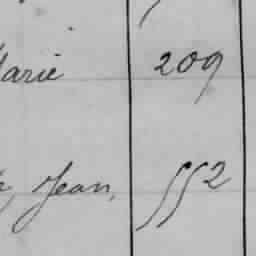 Marie 209
Jean, 552